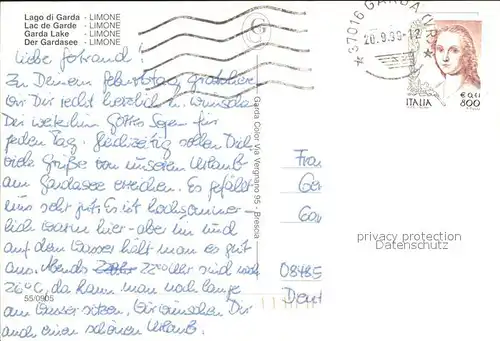 Lago di Garda - LIMONE
Lac de Garde - LIMONE
Garda Lake - LIMONE
Der Gardasee - LIMONE
Liebe
Zu Deinem Geburtstag gratulieren
wir Dir recht herzlich u. wünschen
Dir weiterhin Gottes Segen für
jeden Tag. Gleichzeitig sollen Dich
viele Grüße von unserem Urlaub
am Gardasee erreichen. Es gefällt
uns sehr gut. Es ist hochsommer-
lich warm hier - aber im und
auf dem Wasser hält man es gut
aus. Abends 22⁰⁰ Uhr sind noch
26°C, da kann man noch lange
am Wasser sitzen. Wir wünschen Dir
auch einen schönen Urlaub.
55/0905
G
Garda Color Via Vergnano 95 - Brescia
*37016 GARDA (VR)*
20.9.99-12
ITALIA
€ 0,41
800
Fran
Ger
08485
Deut
privacy protection
Datenschutz